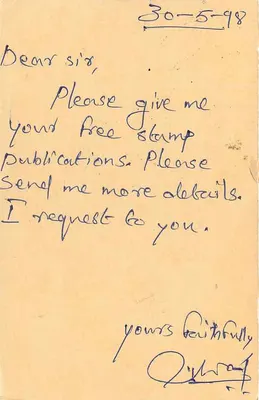 30-5-98
Dear sir,
Please give me
your free stamp
publications. Please
send me more details.
I request to you.
yours faithfully